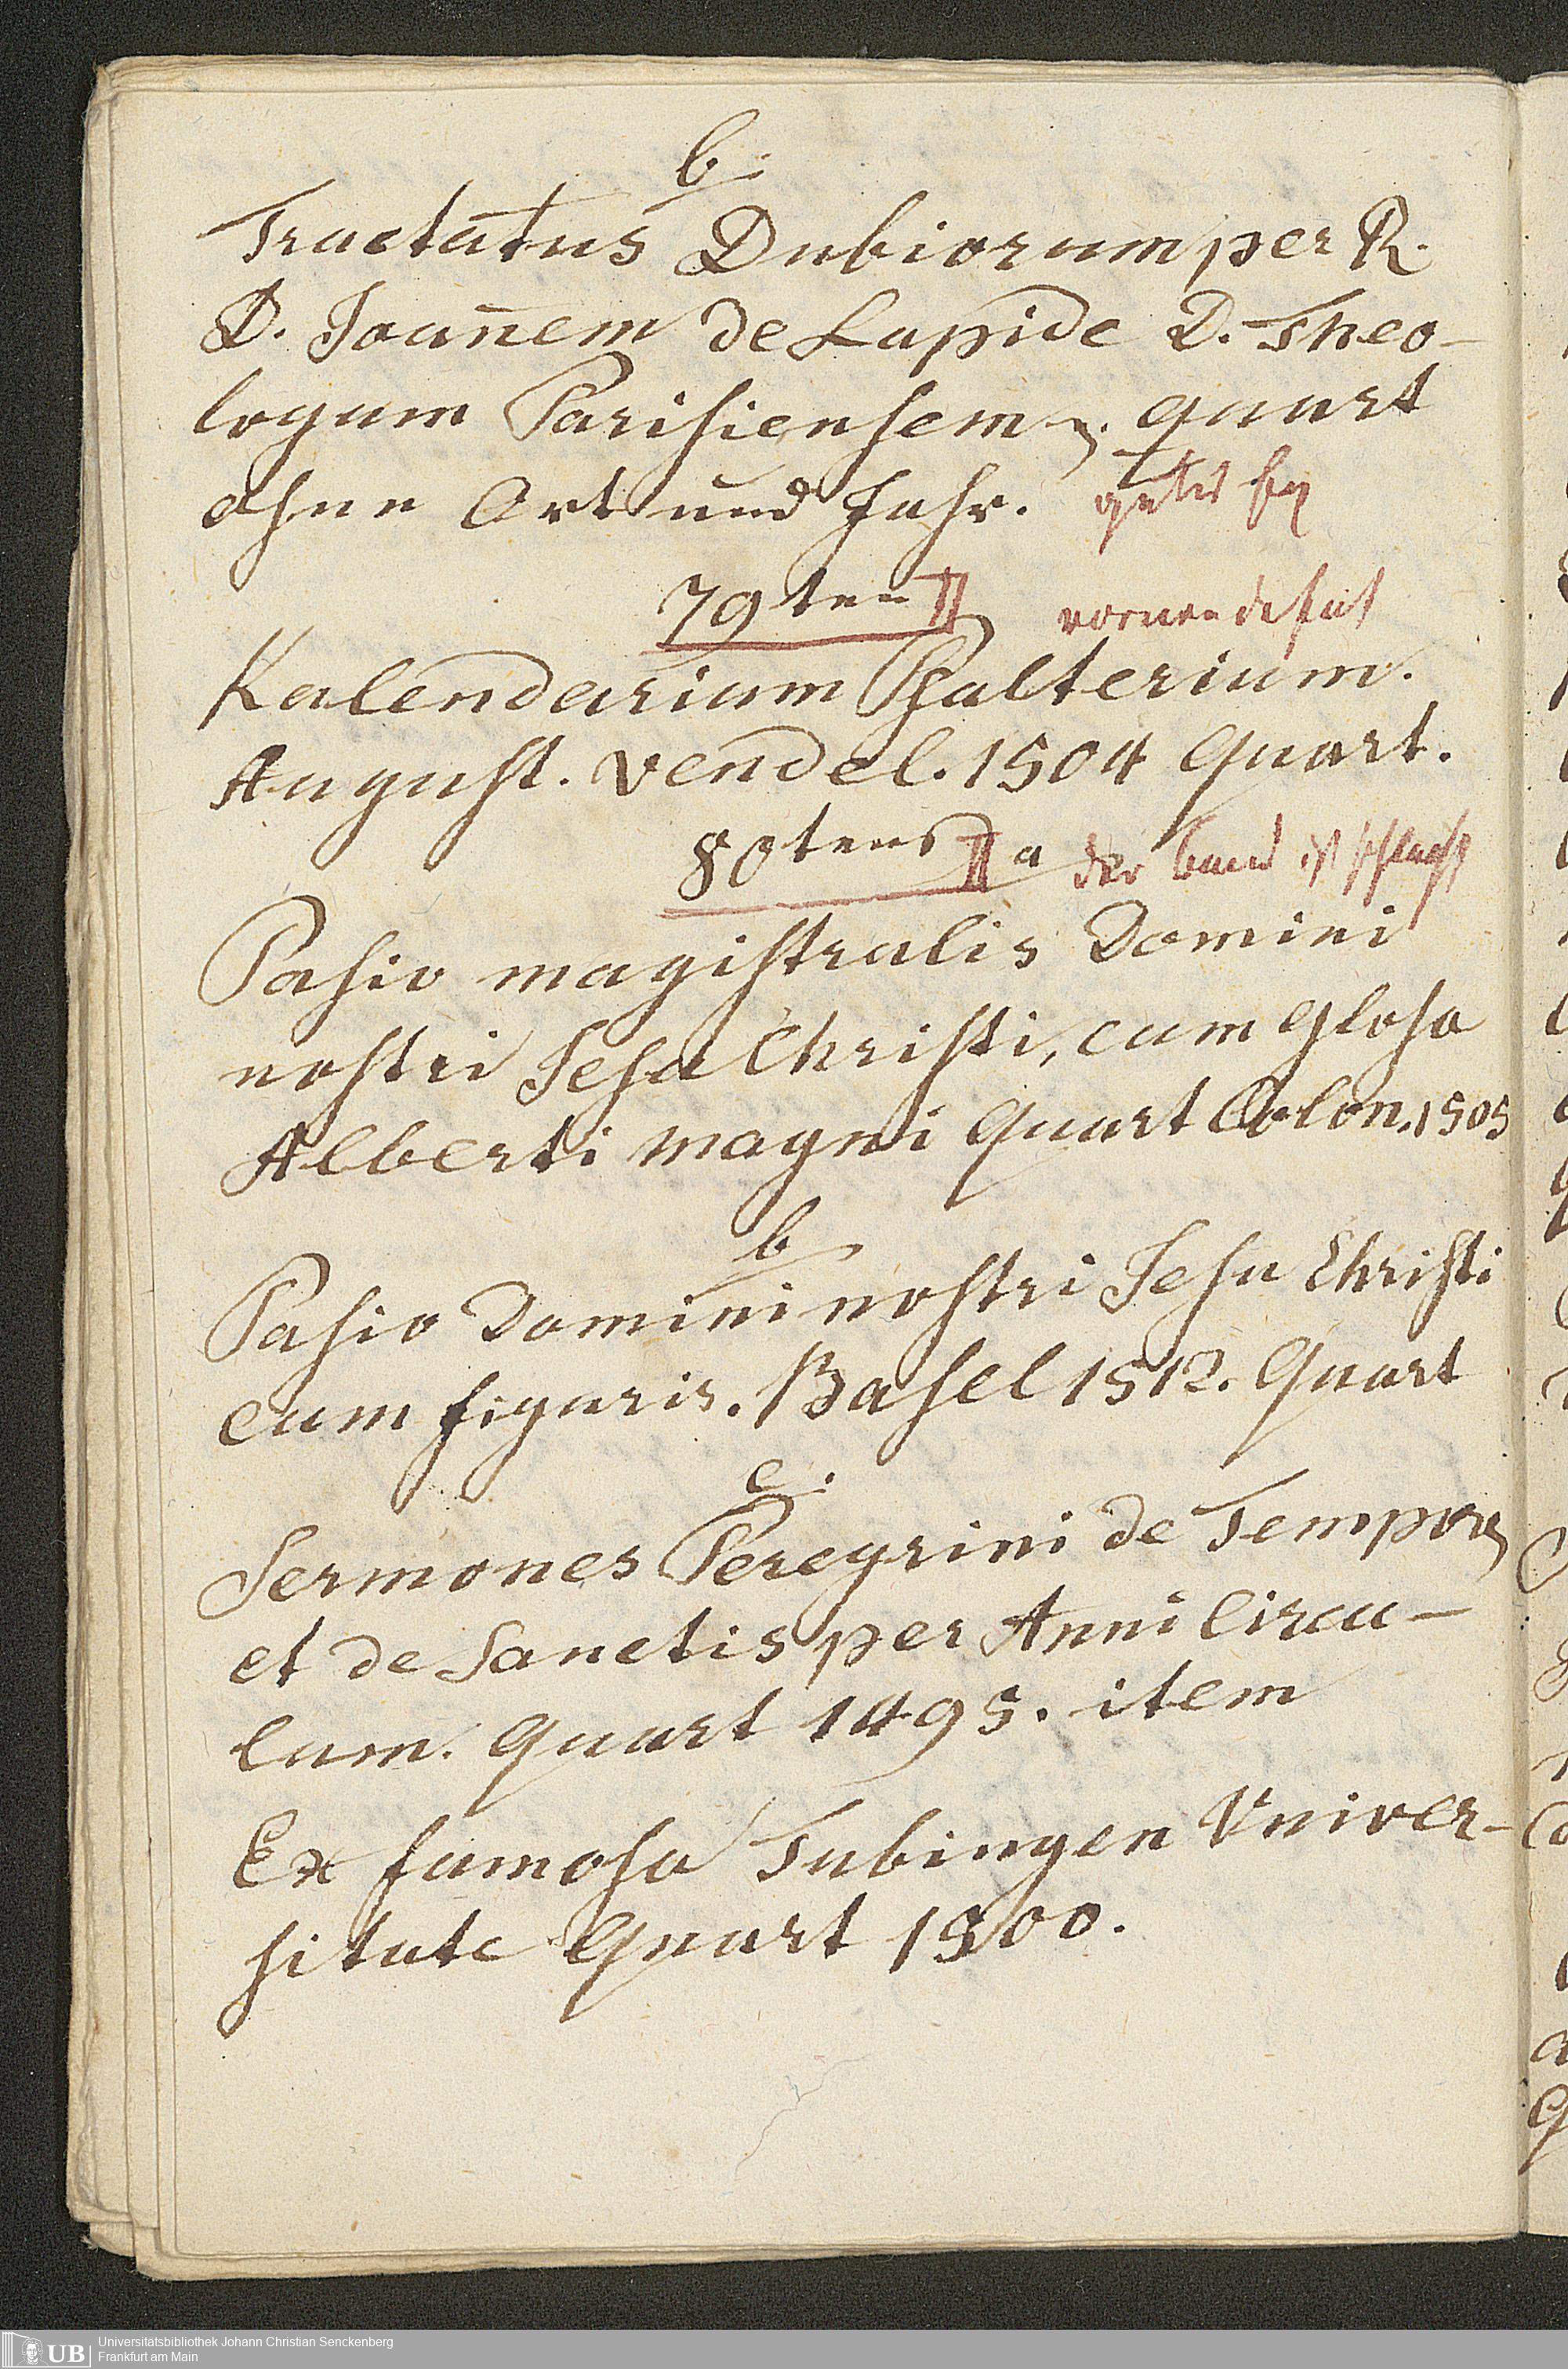 b.
Tractatus Dubiorum per R.
D. Joan̄em de Lapide D. Theo-
logum Parisiensem quart
ohne Ort und Jahr. gutes
79ten II vornen defect
Kalendarium Psalterium.
August. Vendel. 1504 Quart.
80tens II a der band ist schlecht
Pasio magistralis Domini
nostri Jesu Christi, cum Glosa
Alberti magni Quart Colon. 1505
b
Pasio Domini nostri Jesu Christi
cum figuris. Basel 1512. Quart
c.
Sermones Peregrini de Tempore
et de Sanctis per Anni Circu-
lum. Quart 1495. item
Ex famosa Tubingen Univer-
sitate Quart 1500.
UB Universitätsbibliothek Johann Christian Senckenberg
Frankfurt am Main